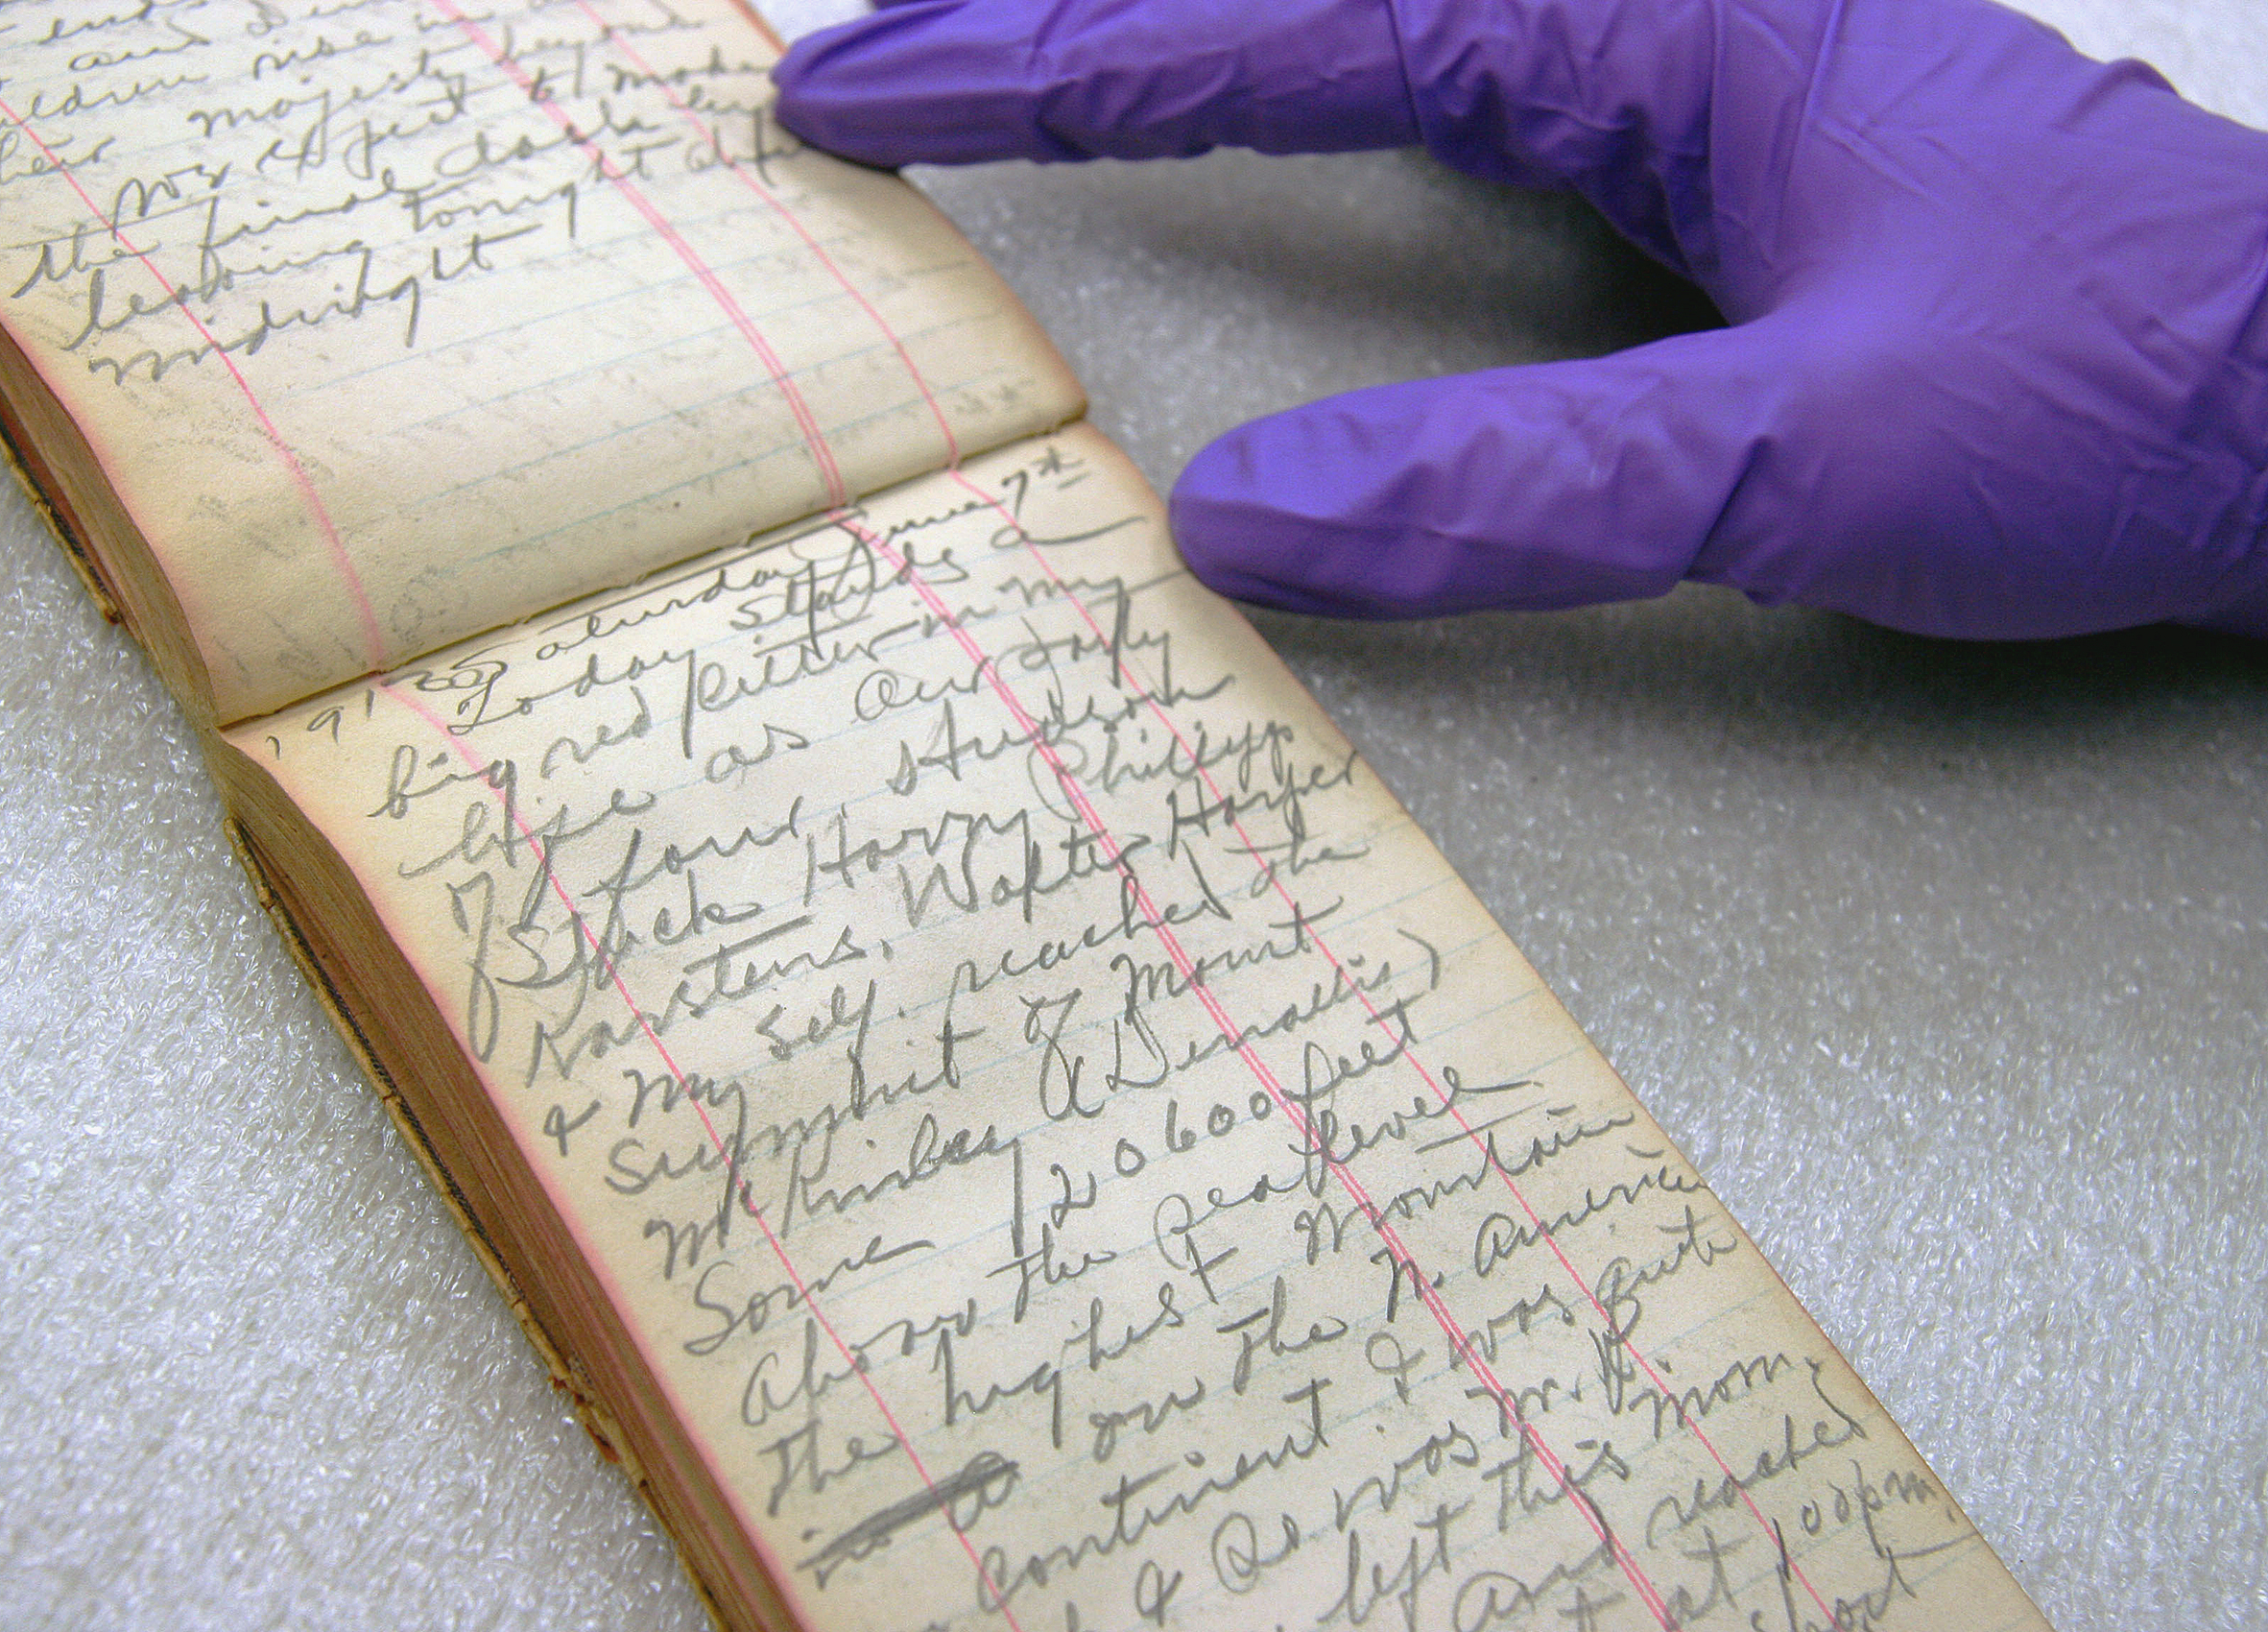 and
children rise in
their majesty beyond
for to make
the final dash
leaving tonight
midnight
Saturday June 7th
191 Today stands a
big red letter in my
life as our party
of four, Hudson
Stuck Harry Phillips
Karstens, Walter Harper
& my self. reached the
Summit of Mount
McKinley (Denalis)
Some 20600 feet
Above the sea level.
the highest Mountain
on the N. America
continent. I was quite
& so was Mr. K
left this morn.
and reached
at 1,00 pm,
short